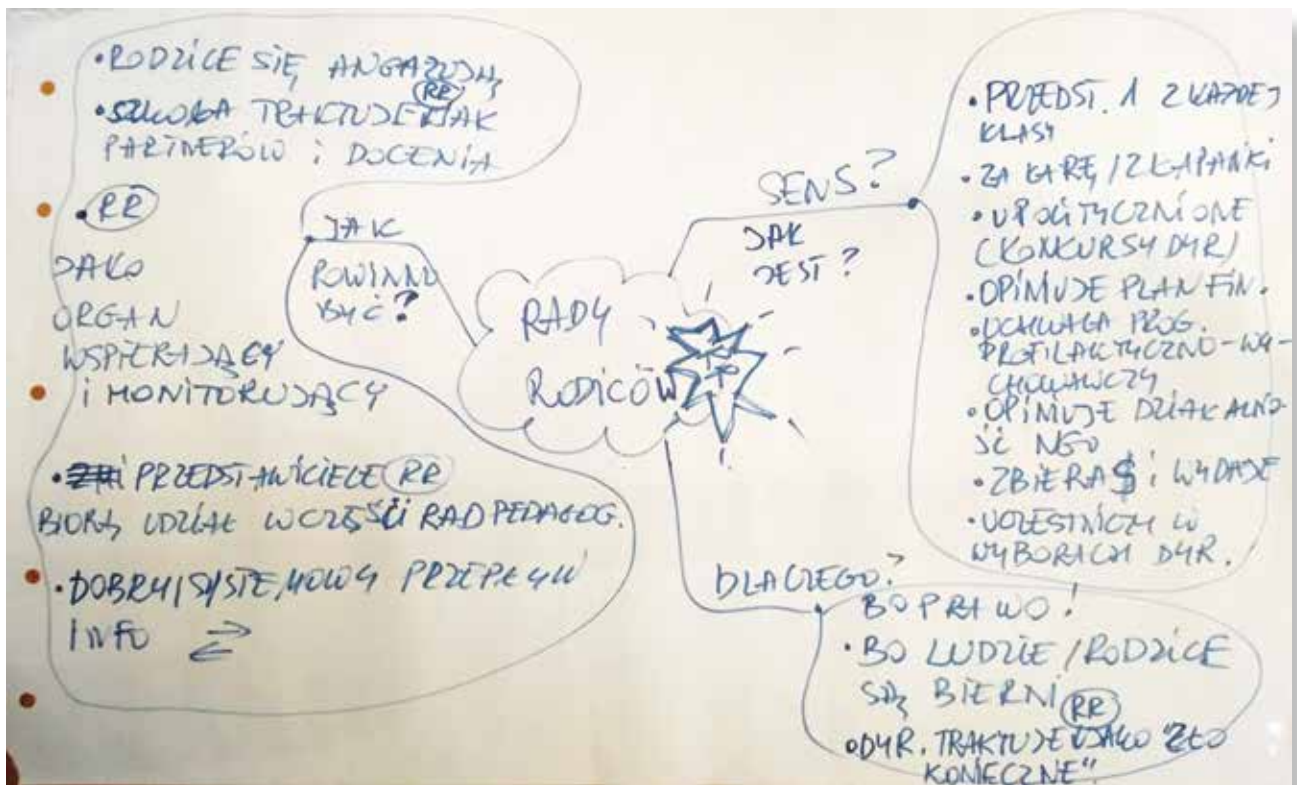 • RODZICE SIĘ ANGAŻUJĄ
• SZKOŁA TRAKTUJE RR JAK
PARTNERÓW i DOCENIA
• RR
JAKO
ORGAN
WSPIERAJĄCY
i MONITORUJĄCY
• PRZEDSTAWICIELE RR
BIORĄ UDZIAŁ W CZĘŚCI RAD PEDAGOG.
• DOBRY/SYSTEMOWY PRZEPŁYW
INFO ⇄
JAK
POWINNO
BYĆ?
RADY
RODICÓW
SENS?
JAK
JEST?
• PRZEDST. 1 Z KAŻDEJ
KLASY
• ZA KARĘ / Z ŁAPANKI
• UPOLITYCZNIONE
(KONKURSY DYR)
• OPINIUJE PLAN FIN.
• UCHWALA PROG.
PROFILAKTYCZNO-WY-
CHOWAWCZY
• OPINIUJE DZIAŁALNO-
ŚĆ NGO
• ZBIERA $ i WYDAJE
• UCZESTNICZY W
WYBORACH DYR.
DLACZEGO?
BO PRAWO!
• BO LUDZIE / RODZICE
SĄ BIERNI
• DYR. TRAKTUJE RR JAKO "ZŁO
KONIECZNE"